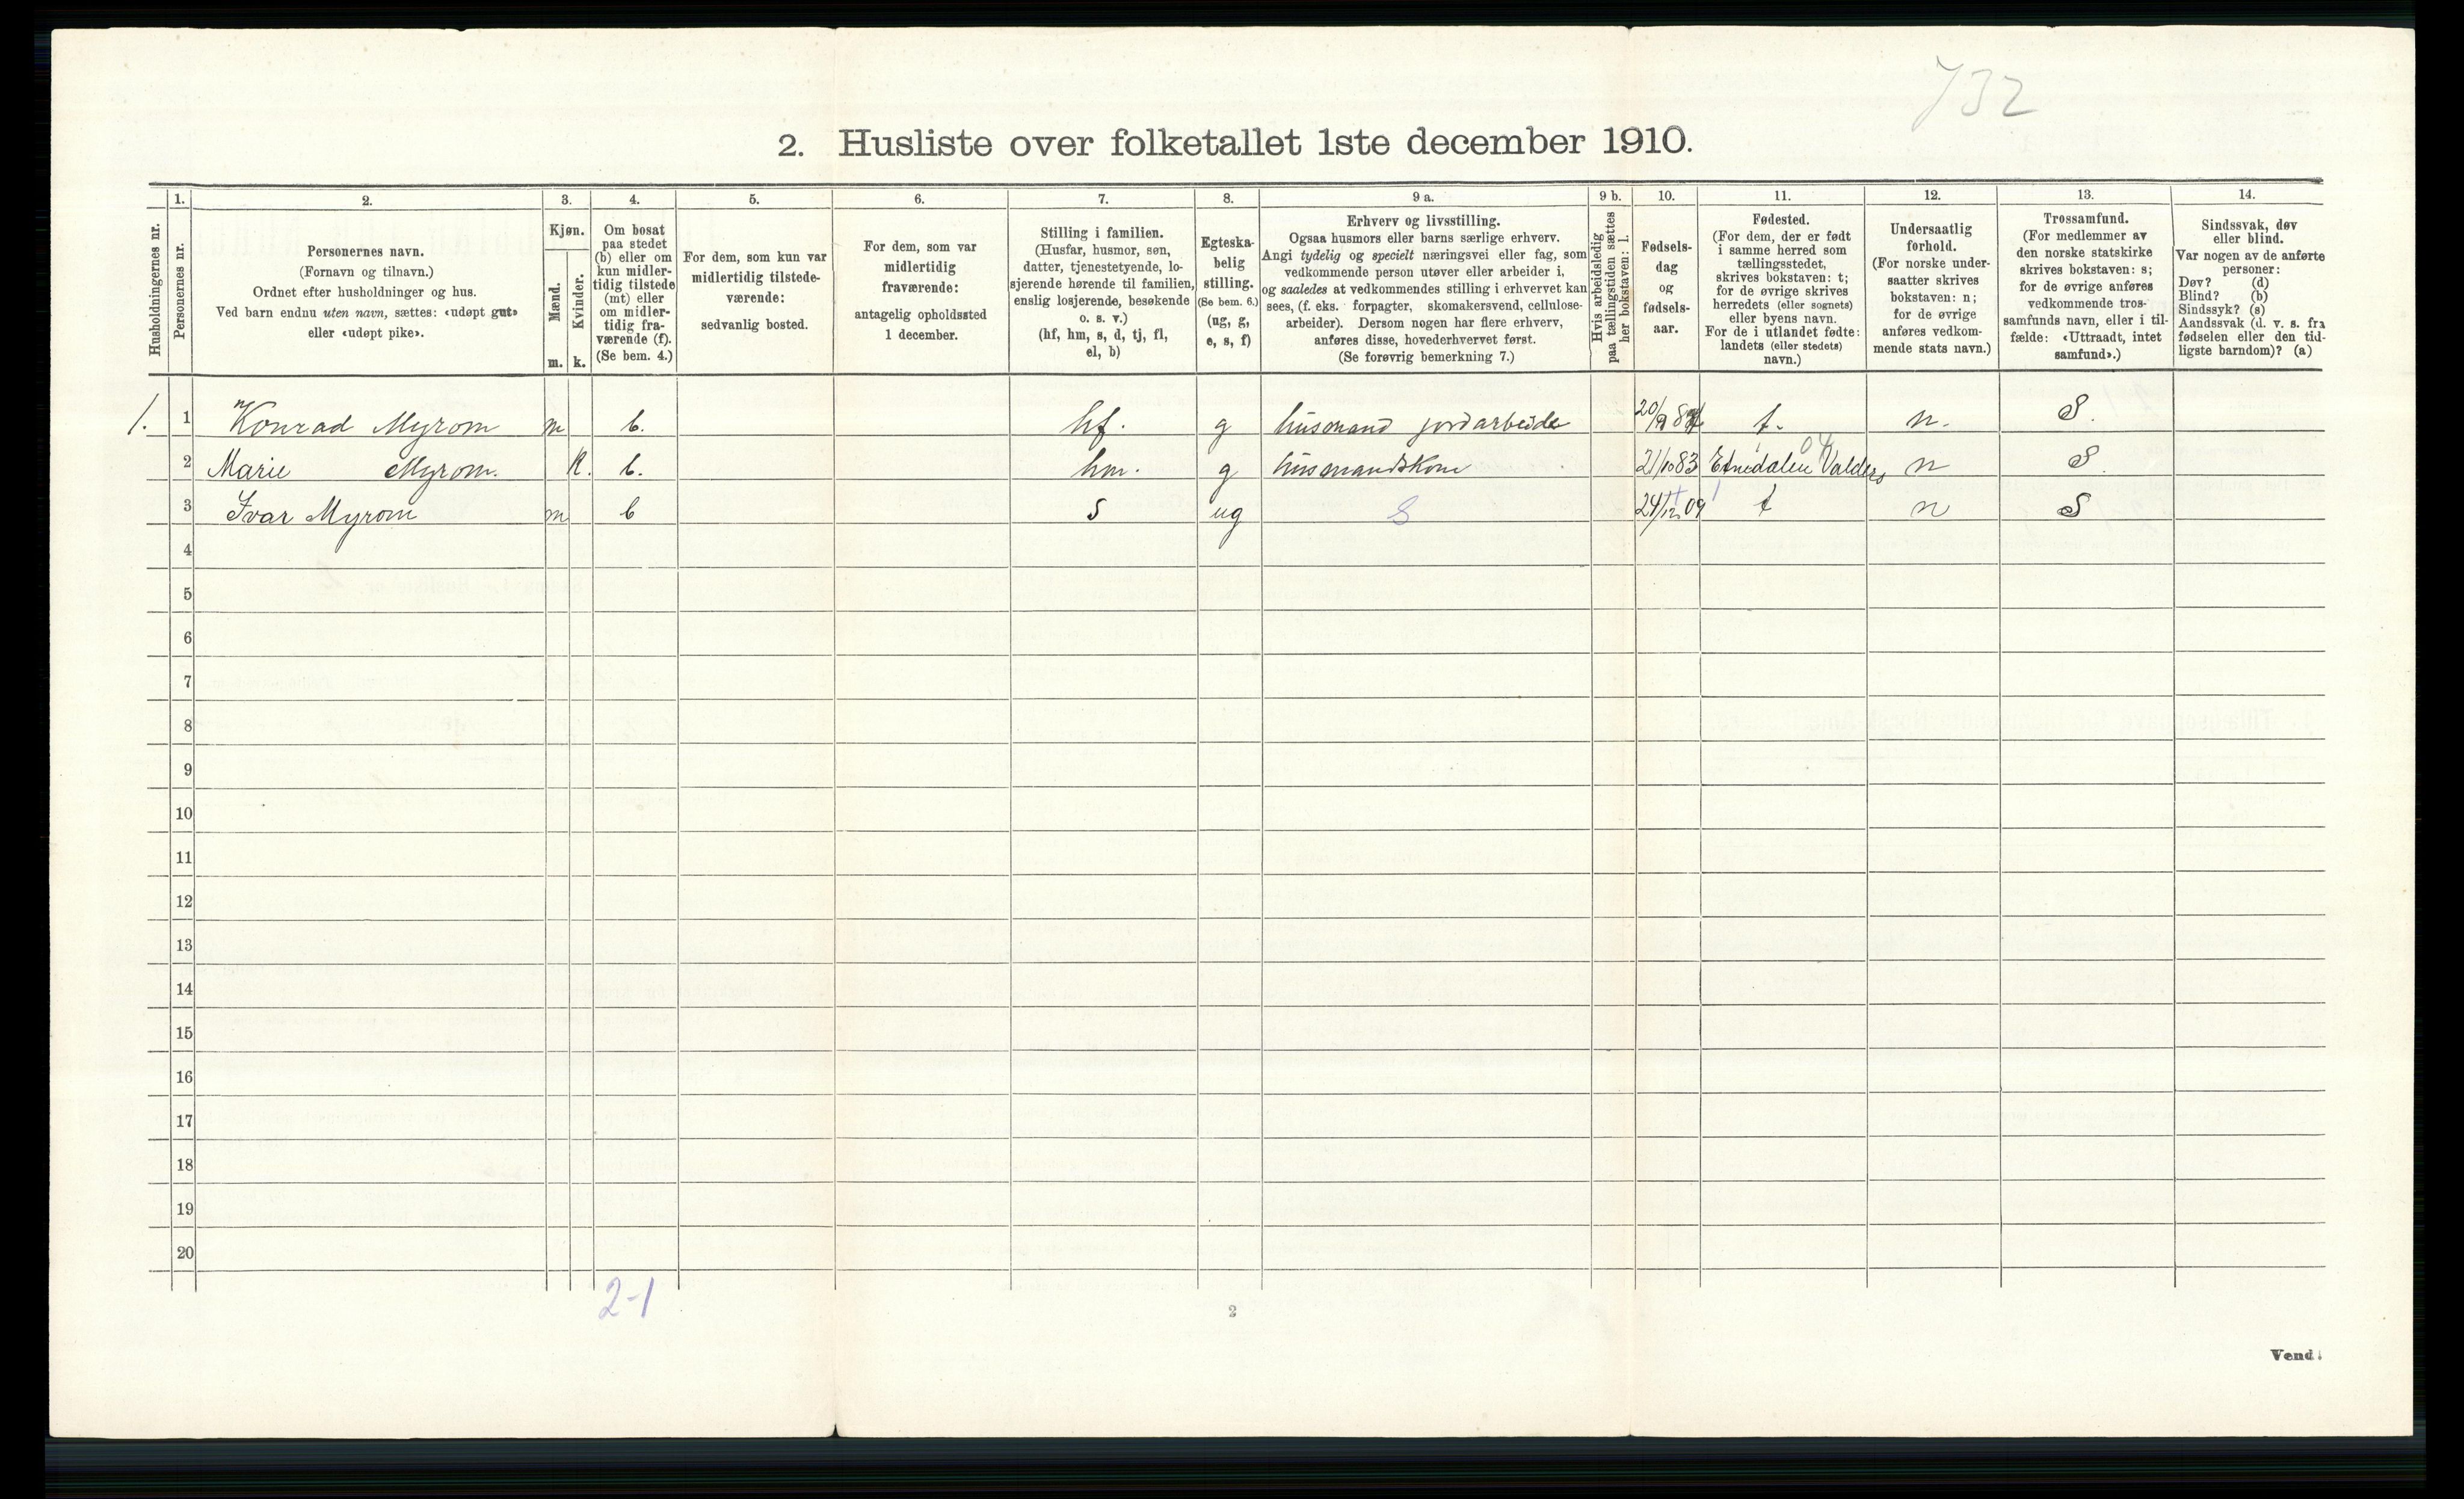 732
2. Husliste over folketallet 1ste december 1910.
Husholdningernes nr.
1.
Personernes nr.
2.
Personernes navn.
(Fornavn og tilnavn.)
Ordnet efter husholdninger og hus.
Ved barn endnu uten navn, sættes: «udøpt gut»
eller «udøpt pike».
3.
Kjøn.
Mænd.
m.
Kvinder.
k.
4.
Om bosat
paa stedet
(b) eller om
kun midler-
tidig tilstede
(mt) eller
om midler-
tidig fra-
værende (f).
(Se bem. 4.)
5.
For dem, som kun var
midlertidig tilstede-
værende:
sedvanlig bosted.
6.
For dem, som var
midlertidig
fraværende:
antagelig opholdssted
1 december.
7.
Stilling i familien.
(Husfar, husmor, søn,
datter, tjenestetyende, lo-
sjerende hørende til familien,
enslig losjerende, besøkende
o. s. v.)
(hf, hm, s, d, tj, fl,
el, b)
8.
Egteska-
belig
stilling.
(Se bem. 6.)
(ug, g,
e, s, f)
9 a.
Erhverv og livsstilling.
Ogsaa husmors eller barns særlige erhverv.
Angi tydelig og specielt næringsvei eller fag, som
vedkommende person utøver eller arbeider i,
og saaledes at vedkommendes stilling i erhvervet kan
sees, (f. eks. forpagter, skomakersvend, cellulose-
arbeider). Dersom nogen har flere erhverv,
anføres disse, hovederhvervet først.
(Se forøvrig bemerkning 7.)
9 b.
Hvis arbeidsledig
paa tællingstiden sættes
her bokstaven: l.
10.
Fødsels-
dag
og
fødsels-
aar.
11.
Fødested.
(For dem, der er født
i samme herred som
tællingsstedet,
skrives bokstaven: t;
for de øvrige skrives
herredets (eller sognets)
eller byens navn.
For de i utlandet fødte:
landets (eller stedets)
navn.)
12.
Undersaatlig
forhold.
(For norske under-
saatter skrives
bokstaven: n;
for de øvrige
anføres vedkom-
mende stats navn.)
13.
Trossamfund.
(For medlemmer av
den norske statskirke
skrives bokstaven: s;
for de øvrige anføres
vedkommende tros-
samfunds navn, eller i til-
fælde: «Uttraadt, intet
samfund».)
14.
Sindssvak, døv
eller blind.
Var nogen av de anførte
personer:
Døv? (d)
Blind? (b)
Sindssyk? (s)
Aandssvak (d. v. s. fra
fødselen eller den tid-
ligste barndom)? (a)
1. 1 Konrad Myrom m b. hf. g husmand jordarbeider 20/9 t. n. S.
04
2 Marie Myrom. k. b. hm. g husmandskone 21/10 83 Etnedalen Valders n S.
3 Ivar Myrom m b s ug S 24/12 09 t n S
4
5
6
7
8
9
10
11
12
13
14
15
16
17
18
19
20
2-1
2
Vend!